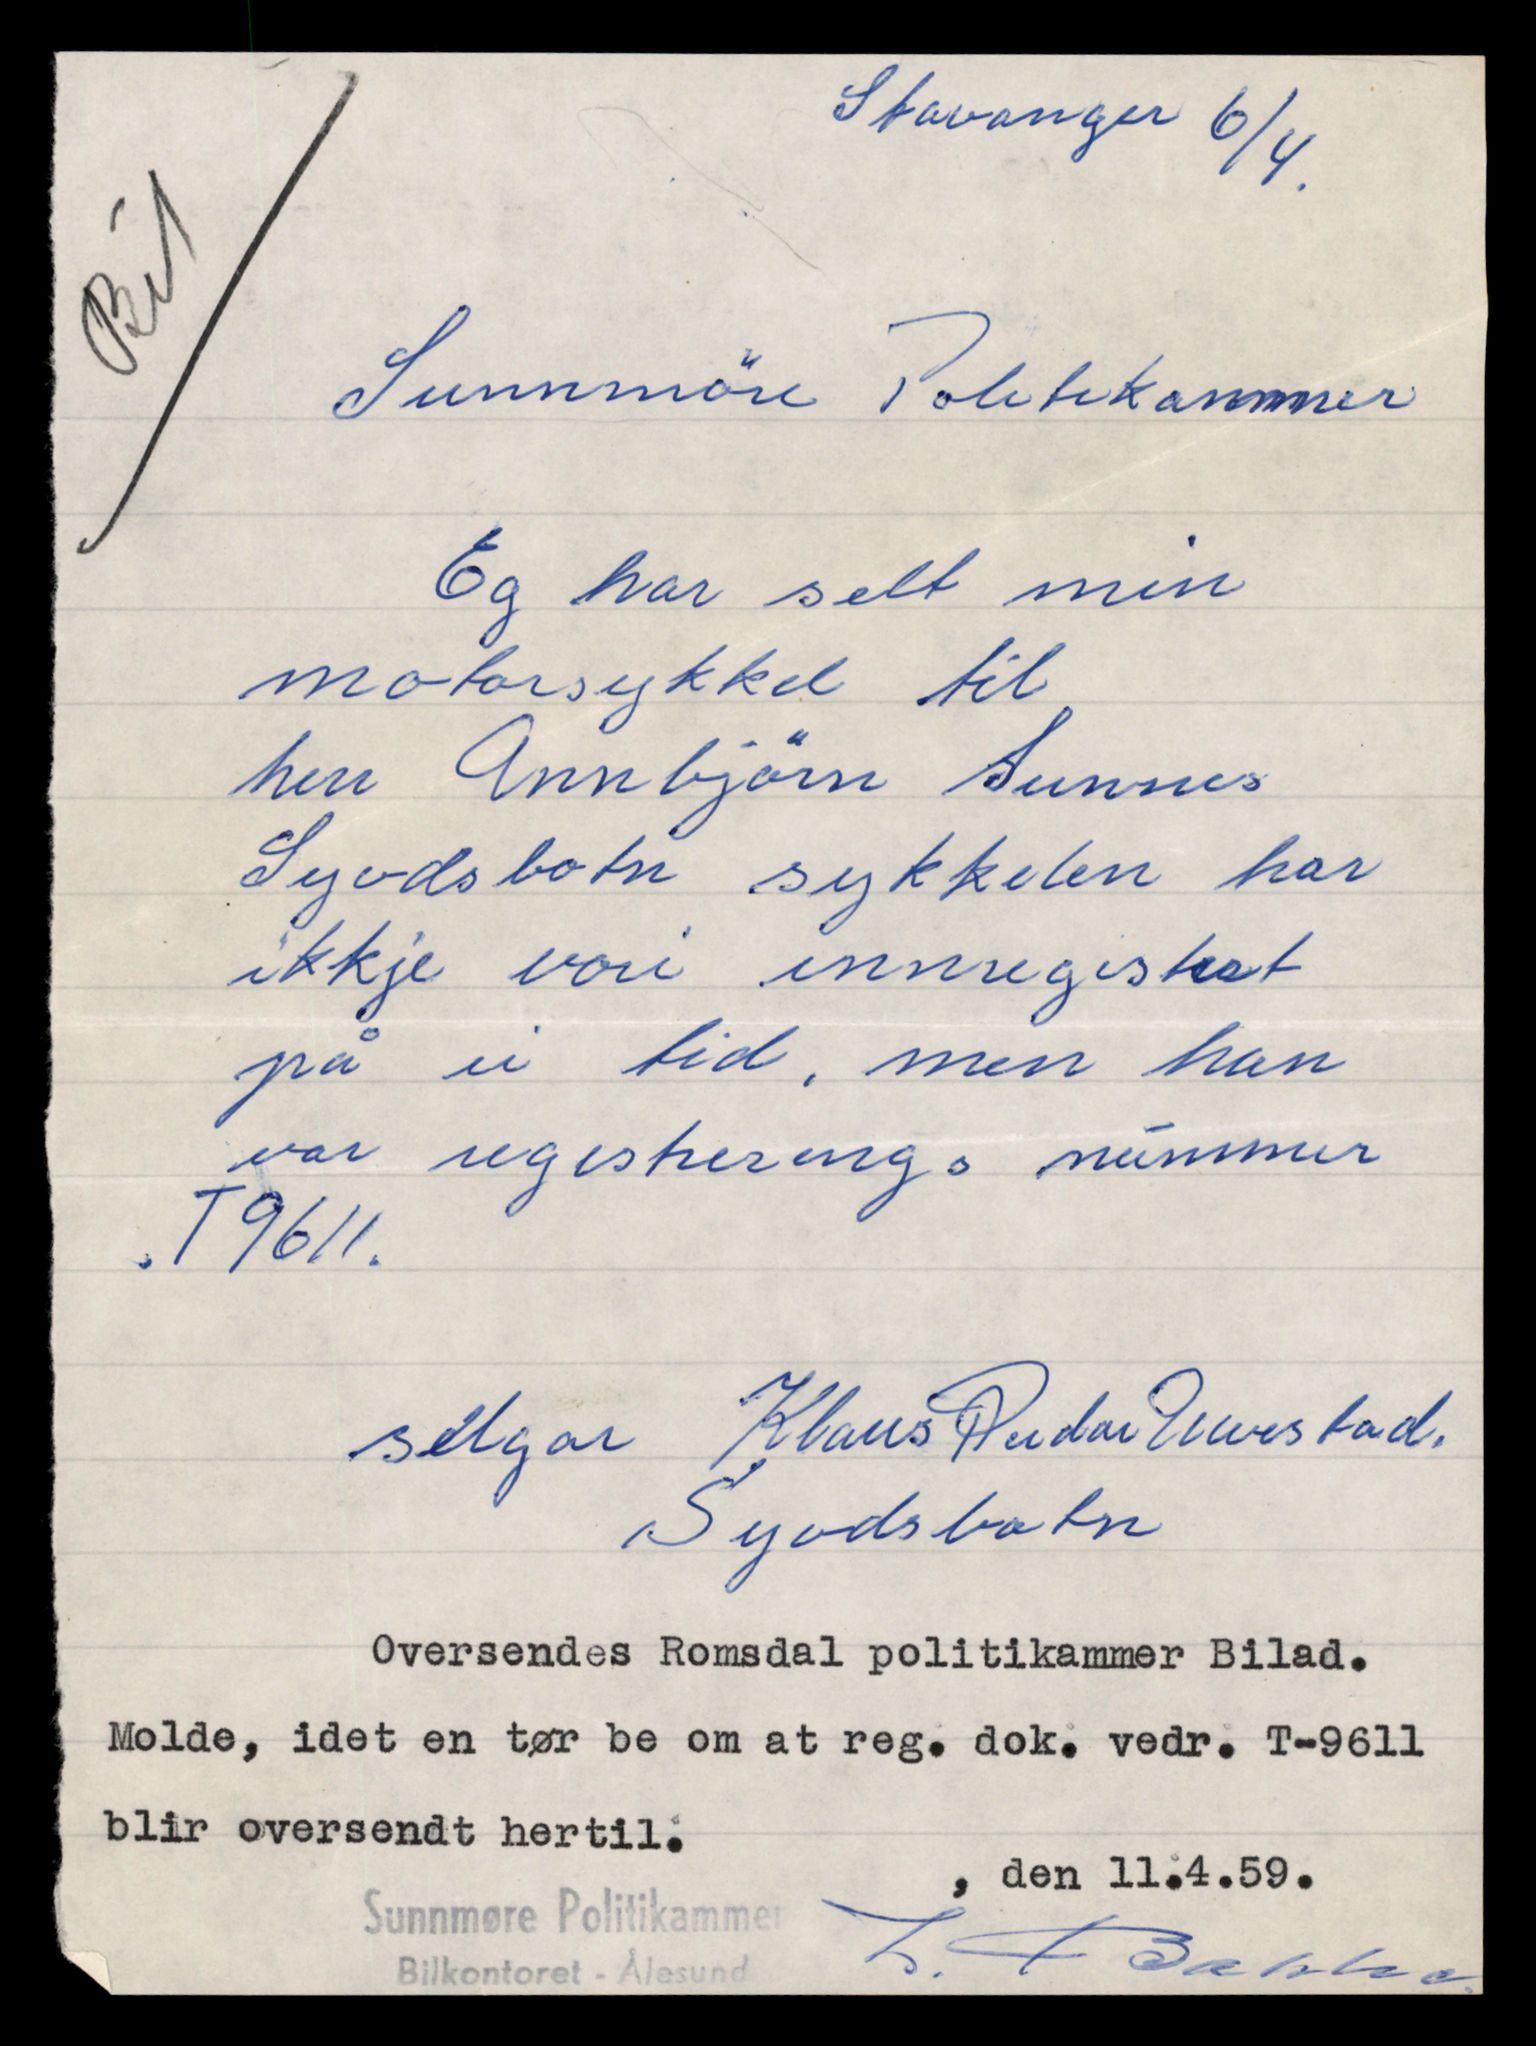 Bil
Stavanger 6/4.
Sunnmöre Politikammer
Eg har selt min
motorsykkel til
herr Annbjörn Sunnes
Syvdsbotn sykkelen har
ikkje vori innregistret
på ei tid, men han
var registrerings nummer
T9611.
selgar Klaus Peidar
Syvdsbotn
Oversendes Romsdal politikammer Bilad.
Molde, idet en tør be om at reg. dok. vedr. T-9611
blir oversendt hertil.
, den 11.4.59.
Sunnmøre Politikammer
Bilkontoret - Ålesund